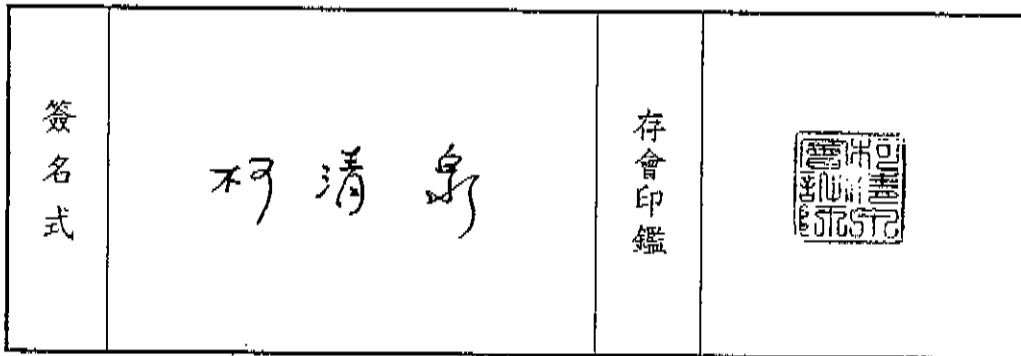 簽名式
柯清泉
存會印鑑